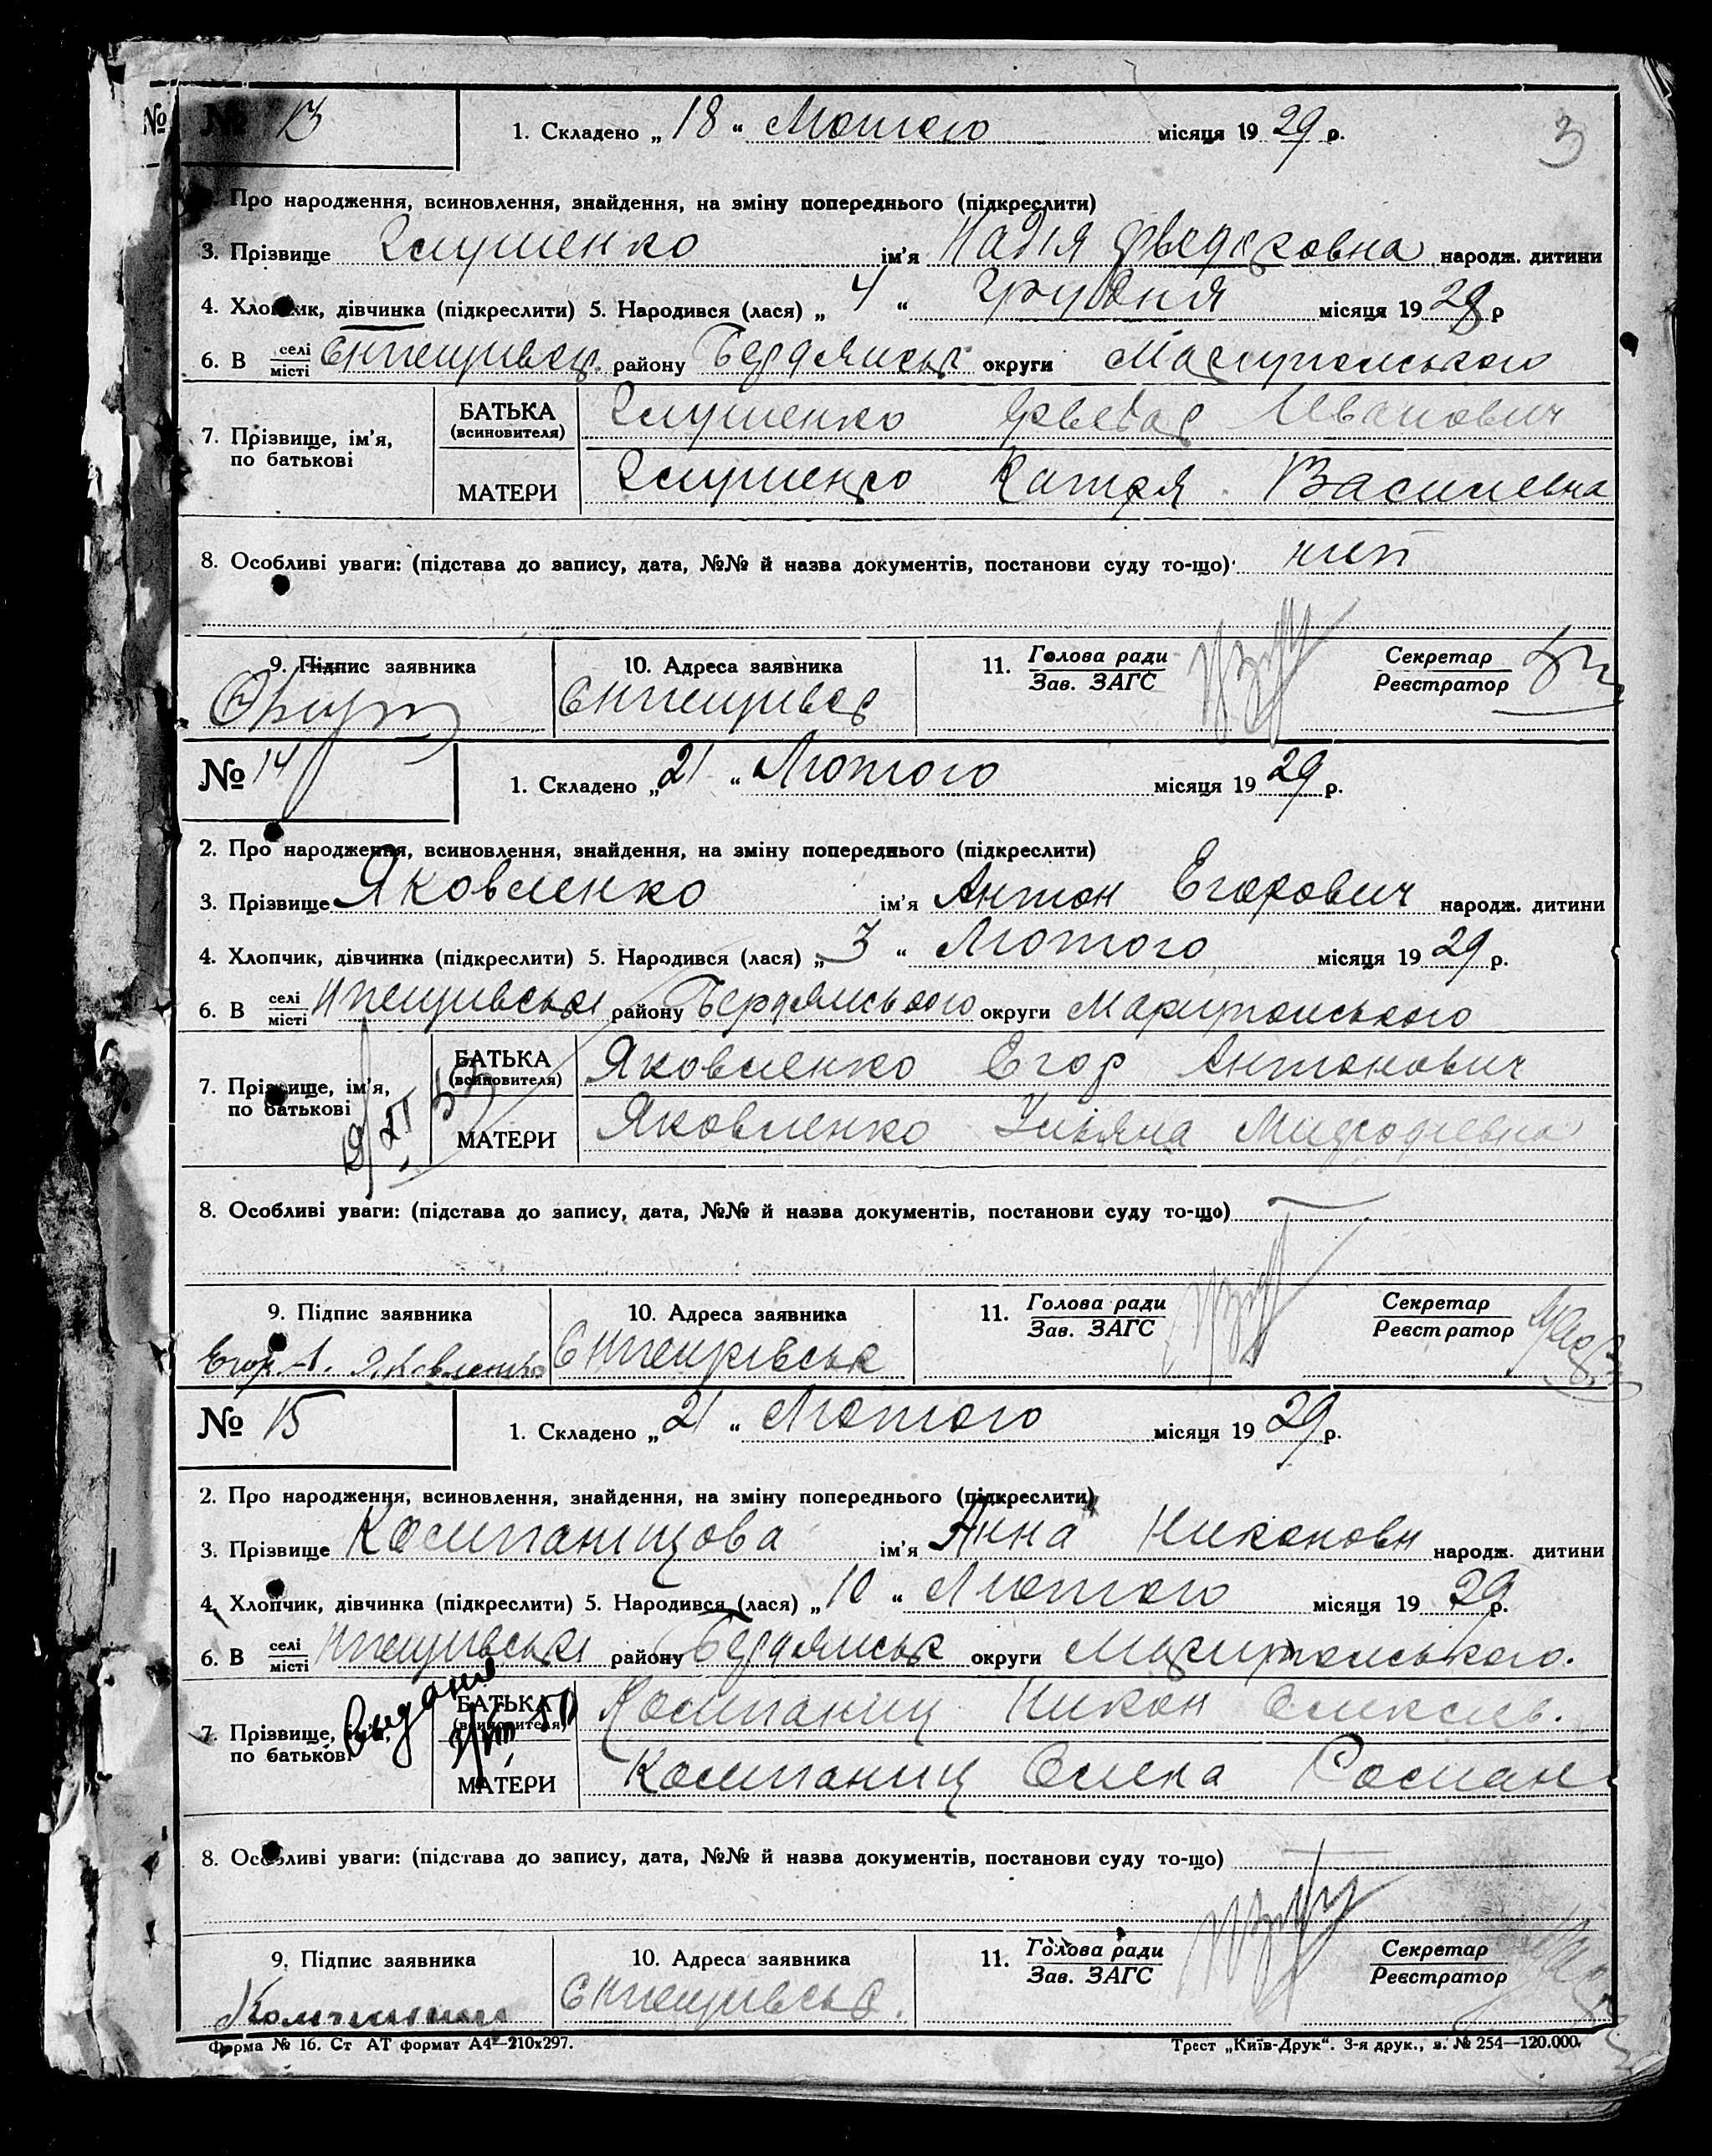 №
№ 13
1. Складено „ 18 “ Лютого місяця 19 29 р.
3
Про народження, всиновлення, знайдення, на зміну попереднього (підкреслити)
3. Прізвище Глушенко ім'я Надія Фьедоровна народж. дитини
4. Хлопчик, дівчинка (підкреслити) 5. Народився (лася) „ 4 “ Грудня місяця 19 28 р
6. В селі місті району Бердянськ округи Маріупольського
7. Прізвище, ім'я, по батькові
БАТЬКА (всиновителя) Глушенко Фьедор Иванович
МАТЕРИ Глушенко Катря Василевна
8. Особливі уваги: (підстава до запису, дата, №№ й назва документів, постанови суду то-що)
9. Підпис заявника
10. Адреса заявника
11. Голова ради Зав. ЗАГС
Секретар Реєстратор
№ 14
1. Складено „ 21 “ Лютого місяця 19 29 р.
2. Про народження, всиновлення, знайдення, на зміну попереднього (підкреслити)
3. Прізвище Яковленко ім'я Антон Егорович народж. дитини
4. Хлопчик, дівчинка (підкреслити) 5. Народився (лася) „ 3 “ Лютого місяця 19 29 р.
6. В селі місті району Бердянського округи Маріупольського
7. Прізвище, ім'я, по батькові
БАТЬКА (всиновителя) Яковленко Егор Антонович
МАТЕРИ Яковленко Ульяна
8. Особливі уваги: (підстава до запису, дата, №№ й назва документів, постанови суду то-що)
9. Підпис заявника
10. Адреса заявника
11. Голова ради Зав. ЗАГС
Секретар Реєстратор
Егор А. Яковленко
№ 15
1. Складено „ 21 “ Лютого місяця 19 29 р.
2. Про народження, всиновлення, знайдення, на зміну попереднього (підкреслити)
3. Прізвище Компаницова ім'я Анна Никоновн народж. дитини
4. Хлопчик, дівчинка (підкреслити) 5. Народився (лася) „ 10 “ Лютого місяця 19 29 р.
6. В селі місті району Бердянськ округи Маріупольського.
7. Прізвище, ім'я, по батькові
Видано
БАТЬКА (всиновителя) Компаниц Никон Олексеев.
МАТЕРИ Компаниц Олена Роман
8. Особливі уваги: (підстава до запису, дата, №№ й назва документів, постанови суду то-що)
9. Підпис заявника
10. Адреса заявника
11. Голова ради Зав. ЗАГС
Секретар Реєстратор
Форма № 16. Ст АТ формат А4—210x297.
Трест „Київ-Друк“. 3-я друк., з. № 254—120.000.